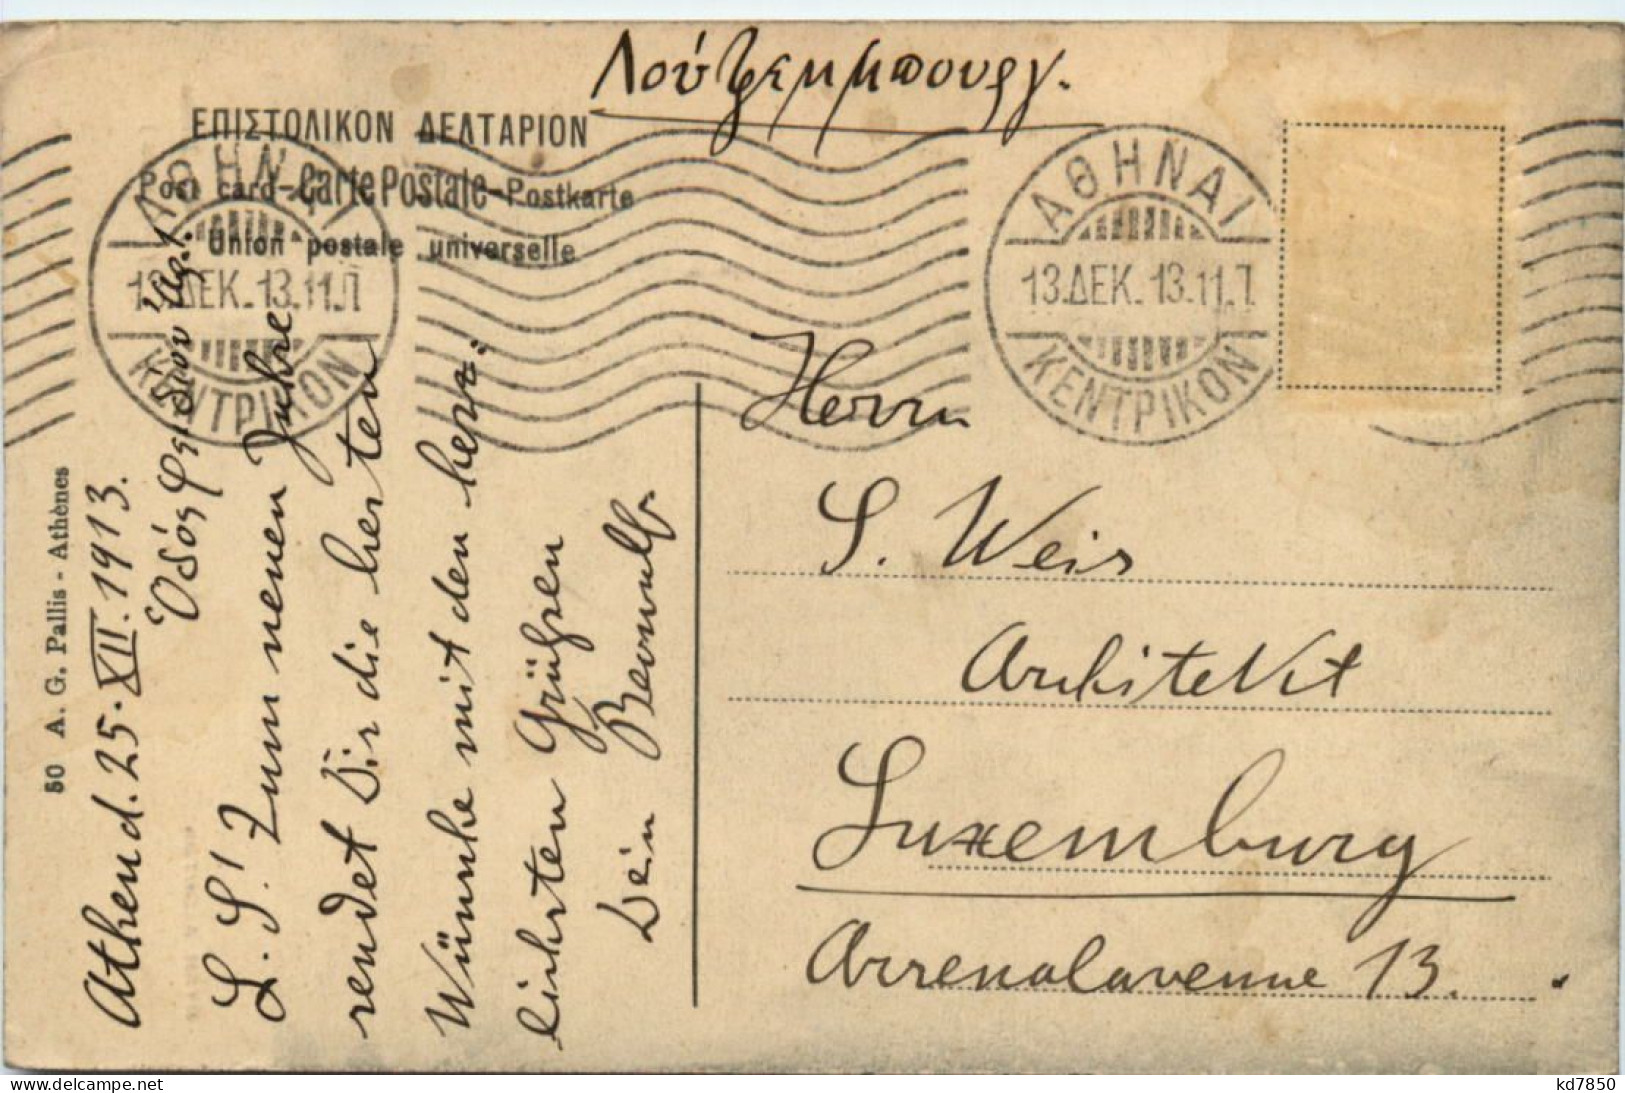 Λούξεμμπουργ.
ΕΠΙΣΤΟΛΙΚΟΝ ΔΕΛΤΑΡΙΟΝ
Post card-Carte Postale-Postkarte
Union postale universelle
ΑΘΗΝΑΙ
13.ΔΕΚ.13.11.Π
ΚΕΝΤΡΙΚΟΝ
ΑΘΗΝΑΙ
13.ΔΕΚ.13.11.Π
ΚΕΝΤΡΙΚΟΝ
50 A. G. Pallis - Athènes
Athen d. 25. XII. 1913.
Ὁδός
L. S! Zum neuen Jahre
sendet Dir die besten
Wünsche mit den herz:
lichsten Grüßen
Dein
Herrn
S. Weis
Architekt
Luxemburg
Arsenalavenue 13.
kd7850